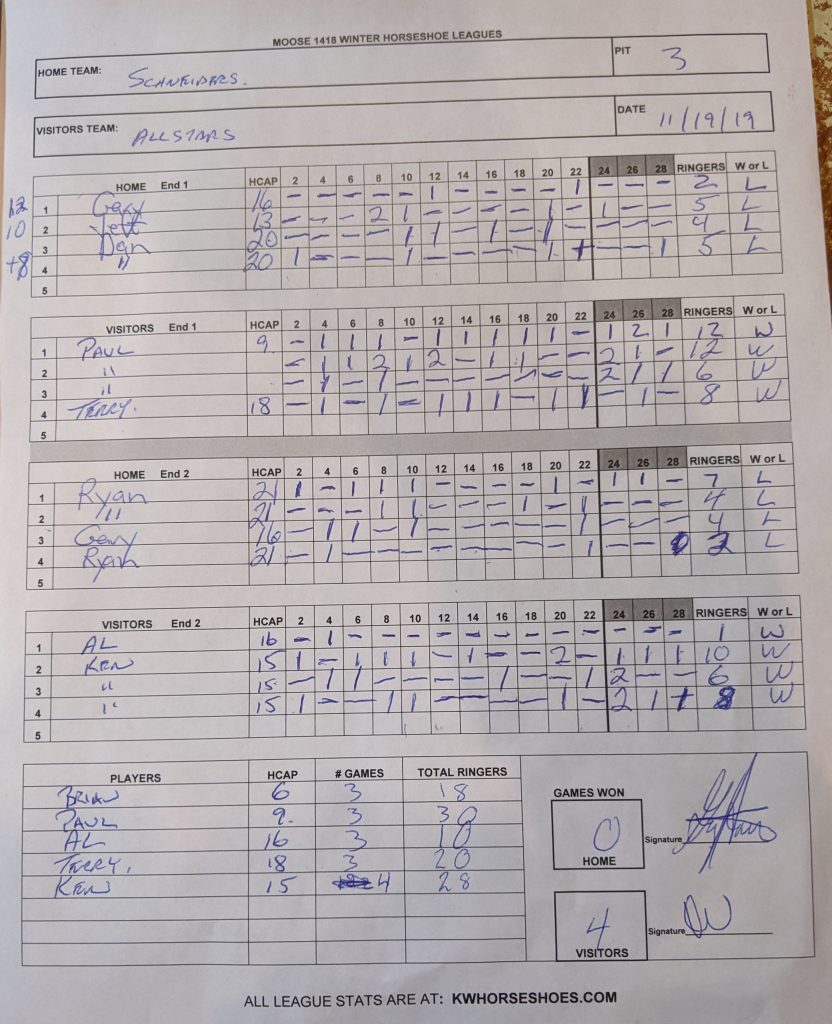 MOOSE 1418 WINTER HORSESHOE LEAGUES
HOME TEAM: SCHNEIDERS. PIT 3
VISITORS TEAM: ALLSTARS DATE 11/19/19
HOME End 1 HCAP 2 4 6 8 10 12 14 16 18 20 22 24 26 28 RINGERS W or L
1 Gary 16 - - - - - 1 - - - - 1 - - - 2 L
10 2 Jeff 13 - - - 2 1 - - - - 1 - 1 - - 5 L
3 Dan 20 - - - - 1 1 - 1 - 1 - - - - 4 L
+8 4 " 20 1 - - - 1 - - - - 1 1 - - 1 5 L
5
VISITORS End 1 HCAP 2 4 6 8 10 12 14 16 18 20 22 24 26 28 RINGERS W or L
1 PAUL 9. - 1 1 1 - 1 1 1 1 1 - 1 2 1 12 W
2 " - 1 1 2 1 2 - 1 1 - - 2 1 - 12 W
3 " - 1 - 1 - - - - - - - 2 1 1 6 W
4 TERRY. 18 - 1 - 1 - 1 1 1 - 1 1 - 1 - 8 W
5
HOME End 2 HCAP 2 4 6 8 10 12 14 16 18 20 22 24 26 28 RINGERS W or L
1 Ryan 21 1 - 1 1 1 - - - - 1 - 1 1 - 7 L
2 " 21 - - - 1 1 - - - 1 - 1 - - - 4 L
3 Gary 16 - 1 1 - 1 - - - - - 1 - - - 4 L
4 Ryan 21 - 1 - - - - - - - - 1 - - 2 L
5
VISITORS End 2 HCAP 2 4 6 8 10 12 14 16 18 20 22 24 26 28 RINGERS W or L
1 AL 16 - 1 - - - - - - - - - - - - 1 W
2 KEN 15 1 - 1 1 1 - 1 - - 2 - 1 1 1 10 W
3 " 15 - 1 1 - - - - 1 - - 1 2 - - 6 W
4 " 15 1 - - 1 1 - - - - 1 - 2 1 1 8 W
5
PLAYERS HCAP # GAMES TOTAL RINGERS
BRIAN 6 3 18
PAUL 9. 3 30
AL 16 3 10
TERRY. 18 3 20
KEN 15 4 28
GAMES WON
0
HOME
Signature
4
VISITORS
Signature
ALL LEAGUE STATS ARE AT: KWHORSESHOES.COM